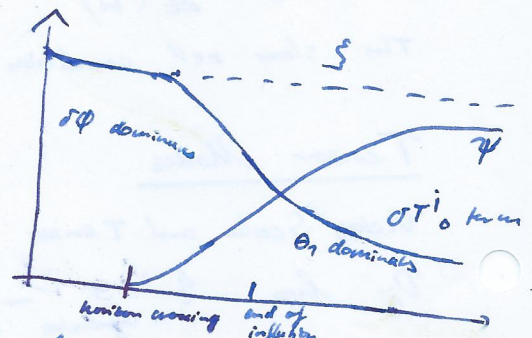 ξ
δφ dominates
ψ
δTⁱ₀ term
Θ₁ dominates
horizon crossing
end of
inflation